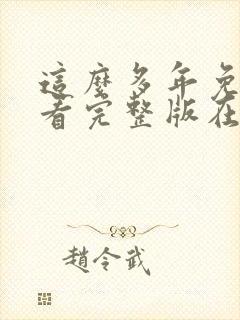 這麼多年免
看完整版在
趙令武